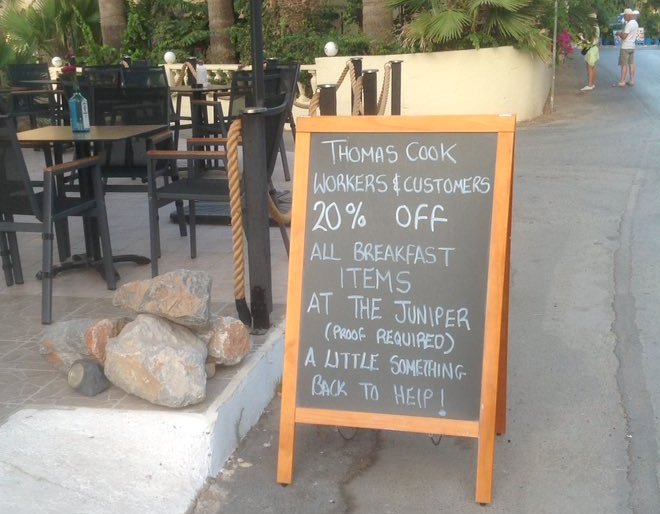 THOMAS COOK
WORKERS & CUSTOMERS
20% OFF
ALL BREAKFAST
ITEMS
AT THE JUNIPER
(PROOF REQUIRED)
A LITTLE SOMETHING
BACK TO HELP!